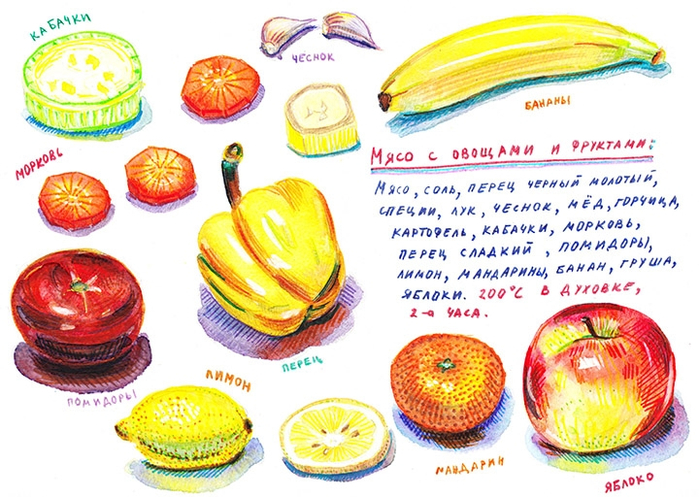 КАБАЧКИ
ЧЕСНОК
БАНАНЫ
МОРКОВЬ
МЯСО С ОВОЩАМИ И ФРУКТАМИ:
МЯСО, СОЛЬ, ПЕРЕЦ ЧЕРНЫЙ МОЛОТЫЙ,
СПЕЦИИ, ЛУК, ЧЕСНОК, МЁД, ГОРЧИЦА,
КАРТОФЕЛЬ, КАБАЧКИ, МОРКОВЬ,
ПЕРЕЦ СЛАДКИЙ, ПОМИДОРЫ,
ЛИМОН, МАНДАРИНЫ, БАНАН, ГРУША,
ЯБЛОКИ. 200°С В ДУХОВКЕ,
2-а ЧАСА.
ПЕРЕЦ
ПОМИДОРЫ
ЛИМОН
МАНДАРИН
ЯБЛОКО